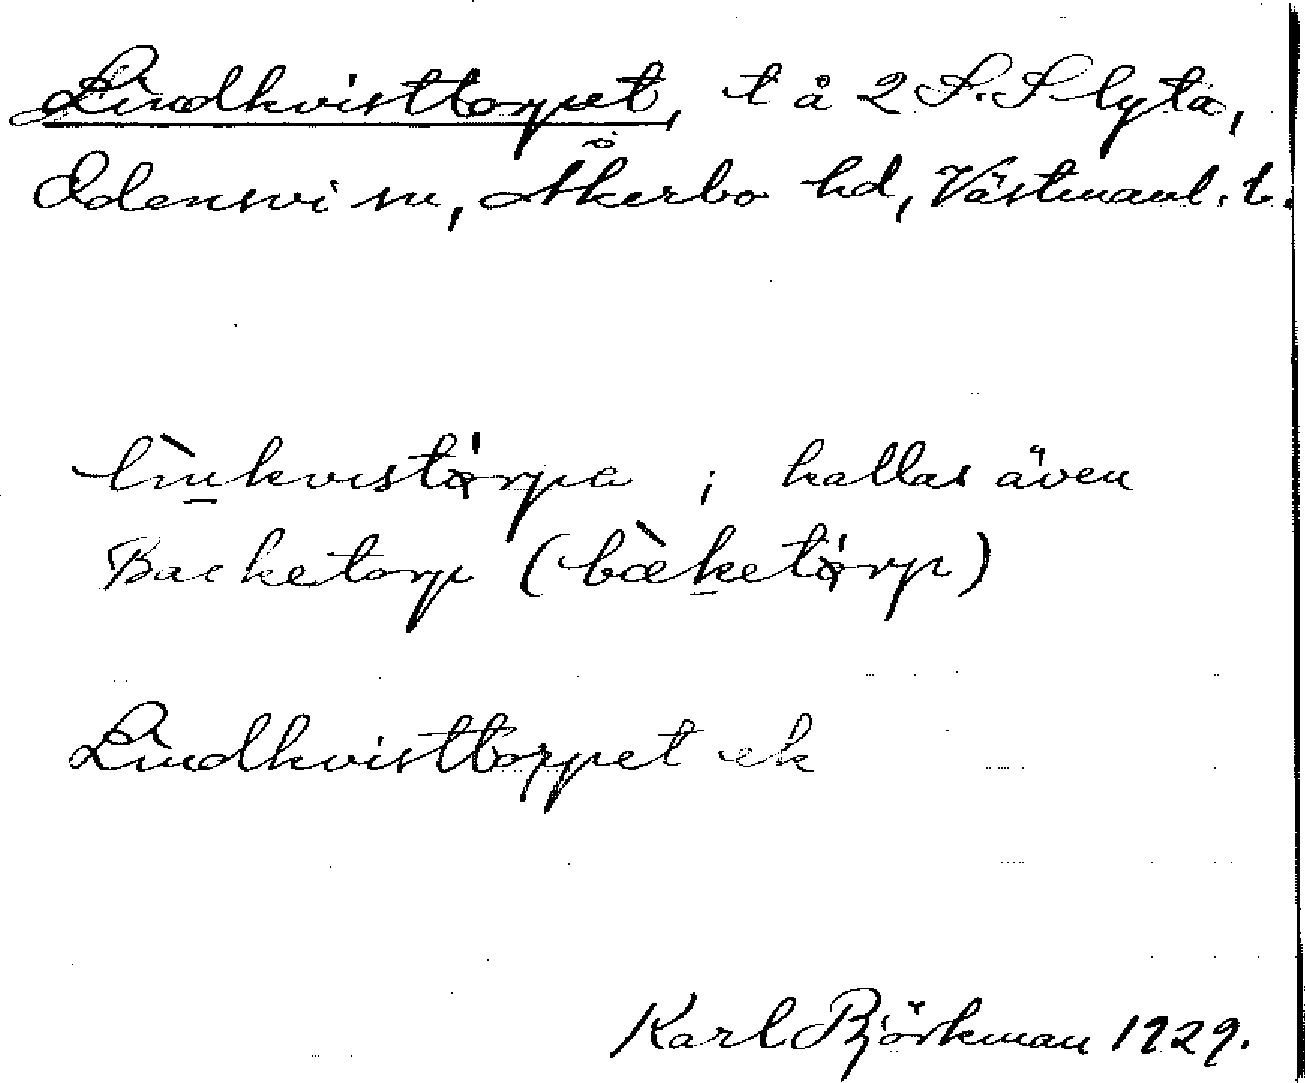 Lindkvisttorpet, t å 2 S. Slyta,
Odensvi sn, Åkerbo hd, Västmanl. l.
lìnkvistórpa ; kallas även
Backetorp (bàketórp)
Lindkvisttorpet ek
Karl Björkman 1929.